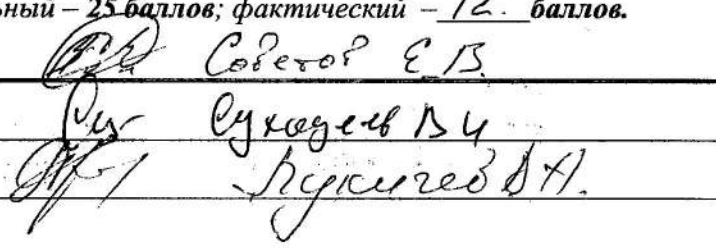 ный – 25 баллов; фактический – 12. баллов.
Советов Е.В.
Суходуев В И
Лукичев А.Н.